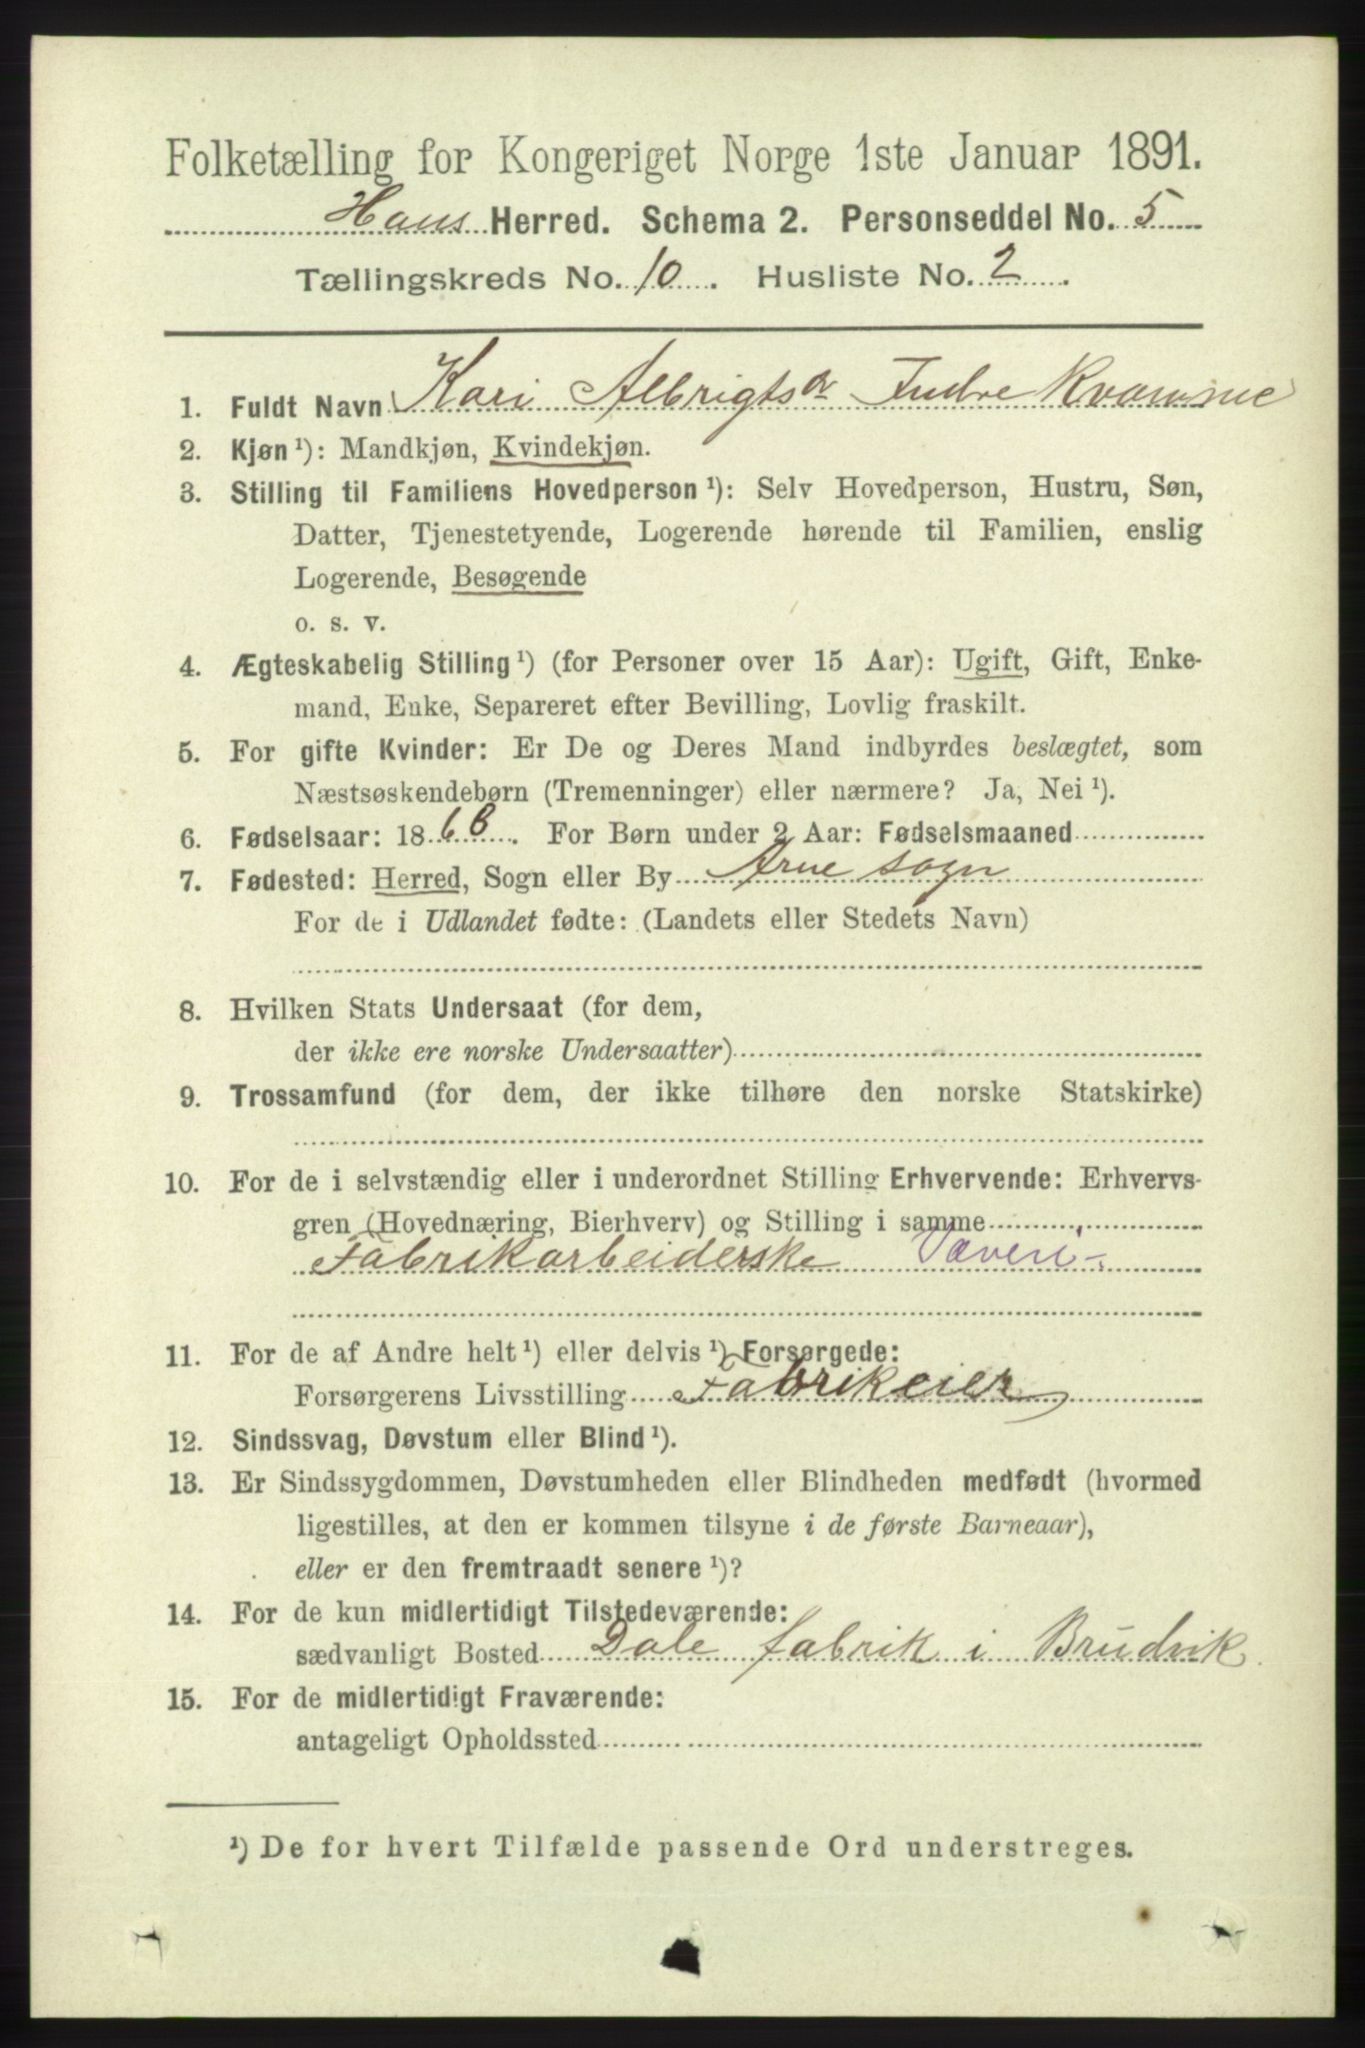 Folketælling for Kongeriget Norge 1ste Januar 1891.
Haus Herred. Schema 2. Personseddel No. 5
Tællingskreds No. 10. Husliste No. 2.
1. Fuldt Navn Kari Albrigtsdr Indre Kvamme
2. Kjøn¹): Mandkjøn, Kvindekjøn.
3. Stilling til Familiens Hovedperson¹): Selv Hovedperson, Hustru, Søn,
Datter, Tjenestetyende, Logerende hørende til Familien, enslig
Logerende, Besøgende
o. s. v.
4. Ægteskabelig Stilling¹) (for Personer over 15 Aar): Ugift, Gift, Enke-
mand, Enke, Separeret efter Bevilling, Lovlig fraskilt.
5. For gifte Kvinder: Er De og Deres Mand indbyrdes beslægtet, som
Næstsøskendebørn (Tremenninger) eller nærmere? Ja, Nei¹).
6. Fødselsaar: 1868. For Børn under 2 Aar: Fødselsmaaned
7. Fødested: Herred, Sogn eller By Arne sogn
For de i Udlandet fødte: (Landets eller Stedets Navn)
8. Hvilken Stats Undersaat (for dem,
der ikke ere norske Undersaatter)
9. Trossamfund (for dem, der ikke tilhøre den norske Statskirke)
10. For de i selvstændig eller i underordnet Stilling Erhvervende: Erhvervs-
gren (Hovednæring, Bierhverv) og Stilling i samme
Fabrikarbeiderske Væveri-
11. For de af Andre helt¹) eller delvis¹) Forsørgede:
Forsørgerens Livsstilling Fabrikeier
12. Sindssvag, Døvstum eller Blind¹).
13. Er Sindssygdommen, Døvstumheden eller Blindheden medfødt (hvormed
ligestilles, at den er kommen tilsyne i de første Barneaar),
eller er den fremtraadt senere¹)?
14. For de kun midlertidigt Tilstedeværende:
sædvanligt Bosted Dale fabrik i Brudvik
15. For de midlertidigt Fraværende:
antageligt Opholdssted
¹) De for hvert Tilfælde passende Ord understreges.